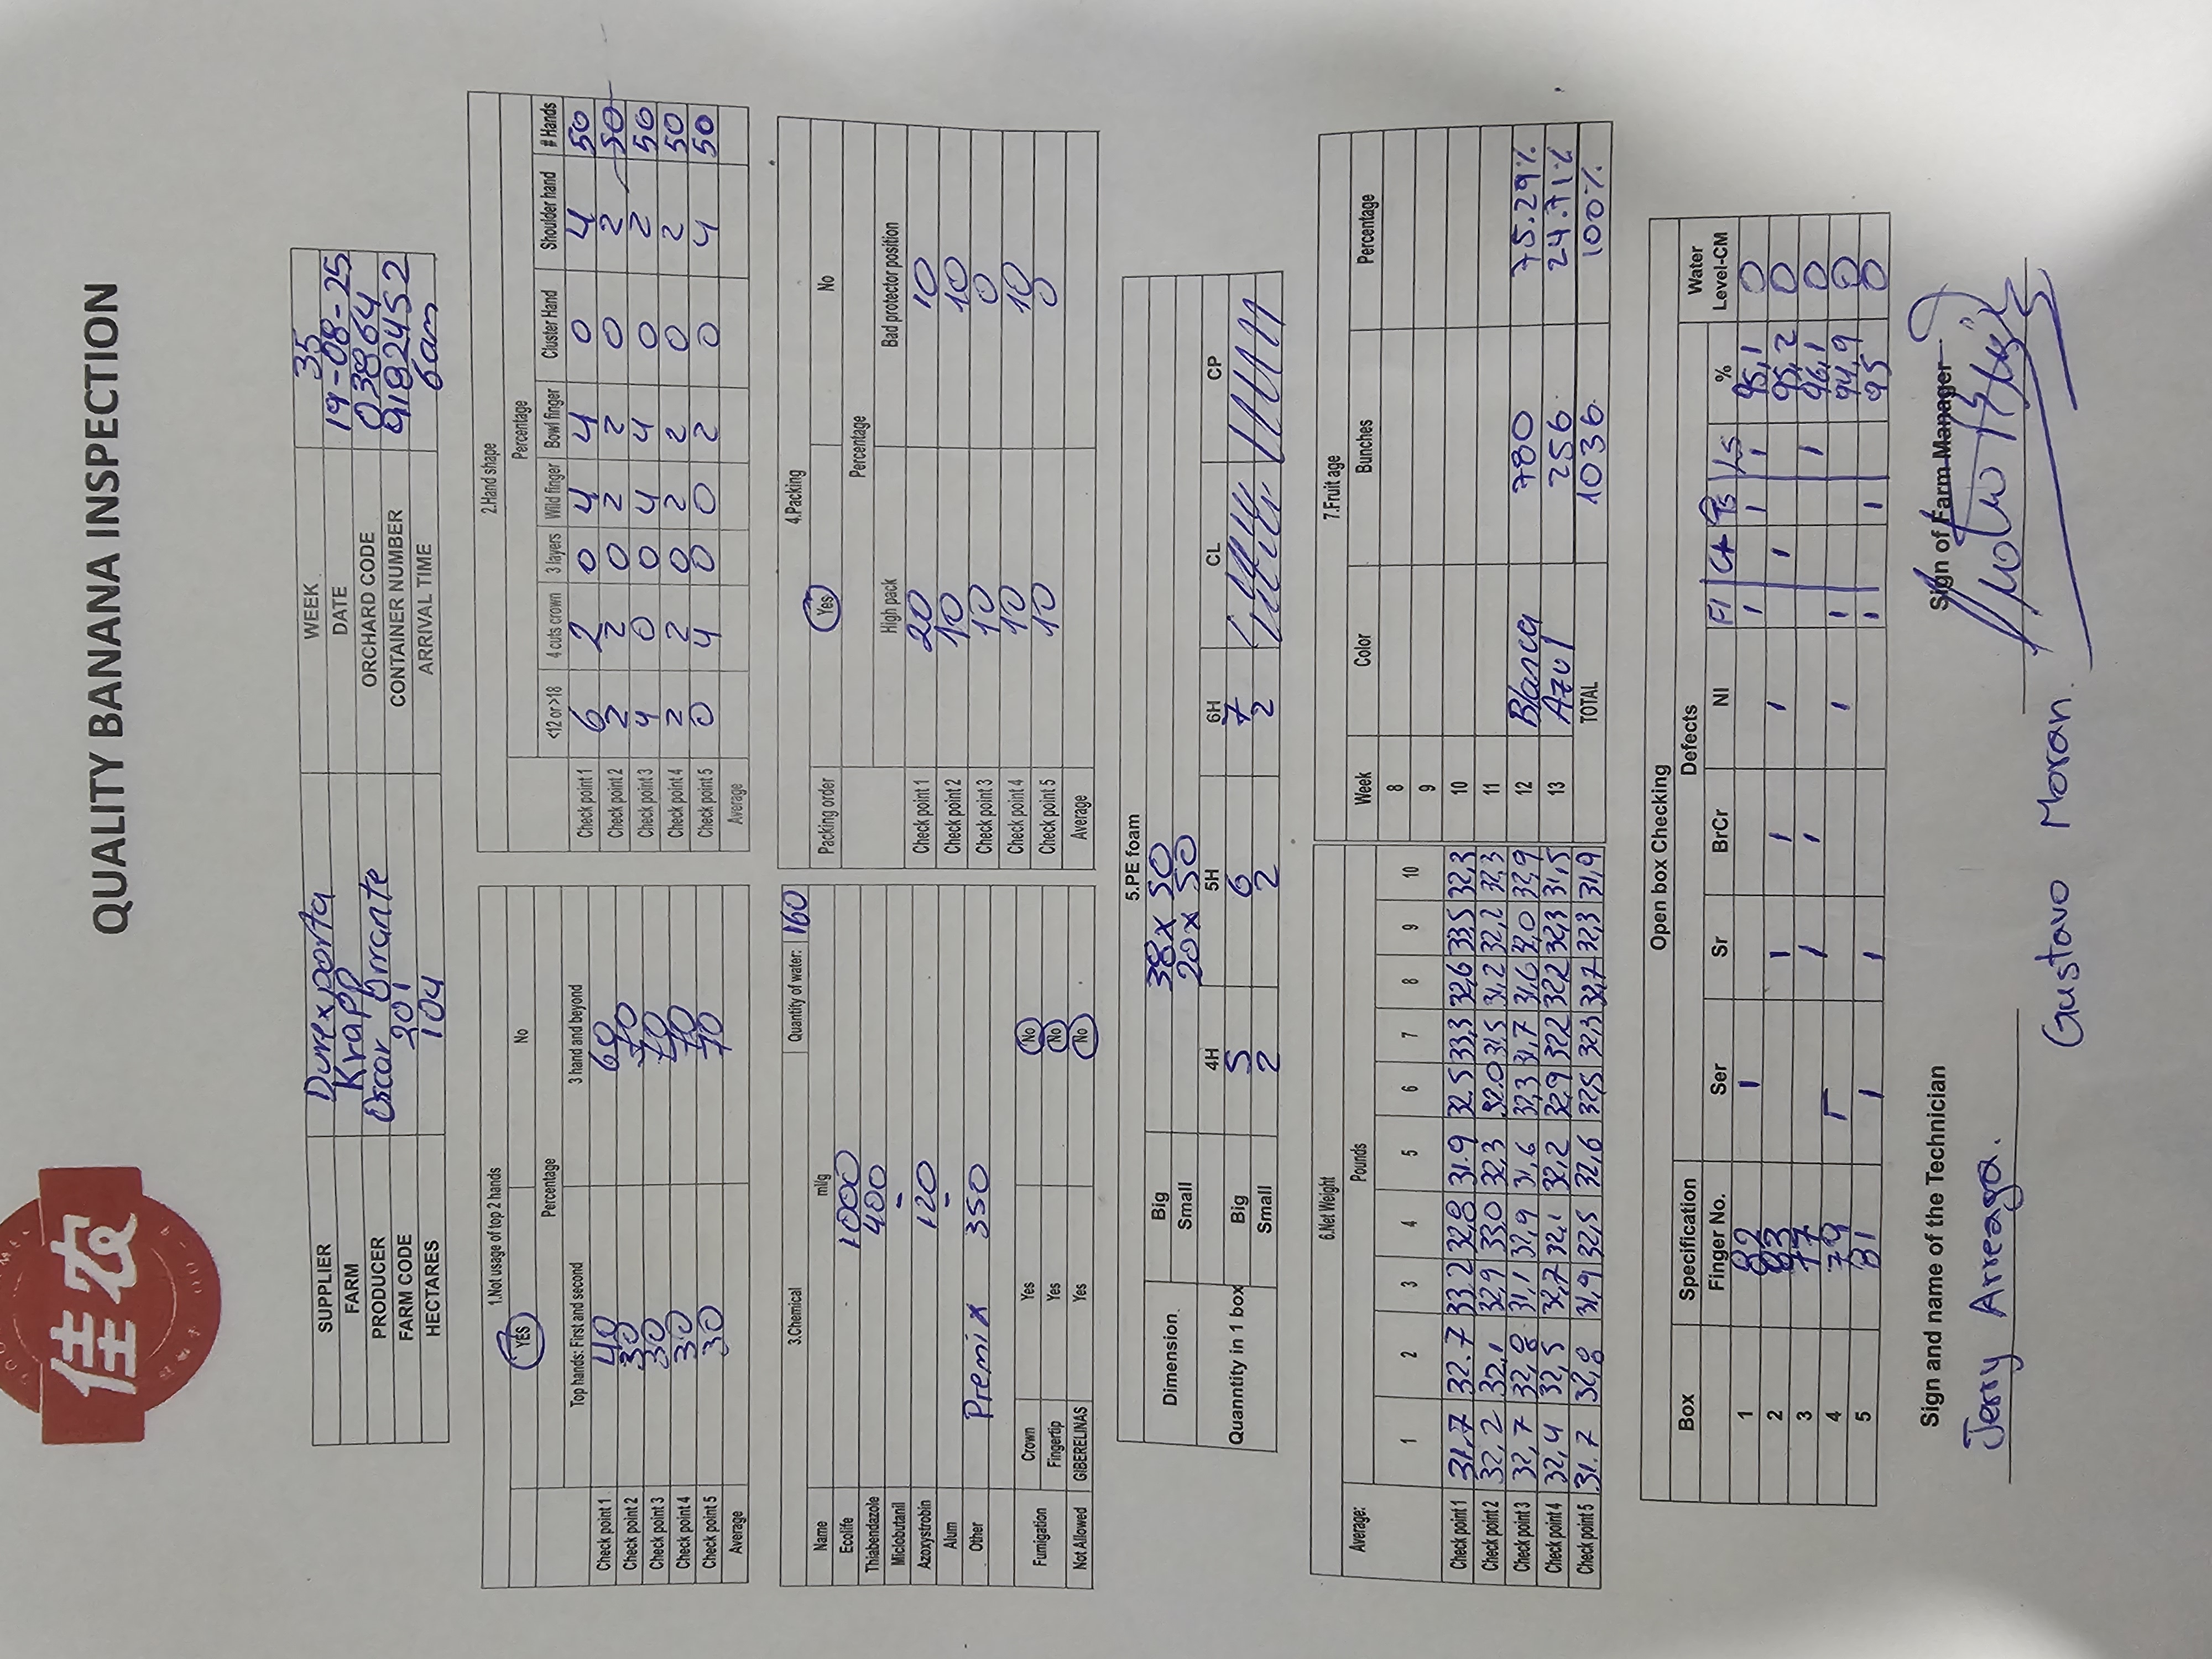 佳农
QUALITY BANANA INSPECTION
SUPPLIER Durexporta WEEK 35
FARM Krapp DATE 19-08-25
PRODUCER Oscar Orrante ORCHARD CODE 03864
FARM CODE 201 CONTAINER NUMBER 9182452
HECTARES 104 ARRIVAL TIME 6am
1.Not usage of top 2 hands
YES No
Percentage
Top hands: First and second 3 hand and beyond
Check point 1 40 60
Check point 2 30 70
Check point 3 30 70
Check point 4 30 70
Check point 5 30 70
Average
2.Hand shape
Percentage
<12 or >18 4 cuts crown 3 layers Wild finger Bowl finger Cluster Hand Shoulder hand # Hands
Check point 1 6 2 0 4 4 0 4 50
Check point 2 2 2 0 2 2 0 2 50
Check point 3 4 0 0 4 4 0 2 50
Check point 4 2 2 0 2 2 0 2 50
Check point 5 0 4 0 0 2 0 4 50
Average
3.Chemical Quantity of water: 160
Name ml/g
Ecolife 1000
Thiabendazole 400
Miclobutanil -
Azoxystrobin 120
Alum -
Other Premix 350
Fumigation Crown Yes No
Fingertip Yes No
Not Allowed GIBERELINAS Yes No
4.Packing
Packing order Yes No
Percentage
High pack Bad protector position
Check point 1 20 10
Check point 2 10 10
Check point 3 10 0
Check point 4 10 10
Check point 5 10 0
Average
5.PE foam
Dimension Big 38 x 50
Small 20 x 50
4H 5H 6H CL CP
Quanntity in 1 box Big 5 6 7
Small 2 2 2
6.Net Weight
Average: Pounds
1 2 3 4 5 6 7 8 9 10
Check point 1 31,7 32.7 33,2 32,8 31.9 32.5 33,3 32,6 33,5 32,3
Check point 2 32,2 32,1 32,9 33,0 32,3 32.0 31,5 31,2 32,2 32,3
Check point 3 32,7 32,8 31,1 32,9 31,6 32,3 31,7 31,6 32,0 32,9
Check point 4 32,4 32,5 32,7 32,1 32,2 32,9 32,2 32,2 32,3 31,5
Check point 5 31.7 32,8 31,9 32,5 32,6 32,5 32,3 32,7 32,3 31,9
7.Fruit age
Week Color Bunches Percentage
8
9
10
11
12 Blanca 780 75.29%
13 Azul 256 24.71%
TOTAL 1036 100%
Open box Checking
Box Specification Defects Water
Finger No. Ser Sr BrCr NI FI % Level-CM
1 82 1 1 1 1 95,1 0
2 83 1 1 1 1 95,2 0
3 77 1 1 1 96,1 0
4 79 1 1 1 94,9 0
5 81 1 1 1 1 95 0
Sign and name of the Technician Sign of Farm Manager
Jerry Arreaga.
Gustavo Moran.